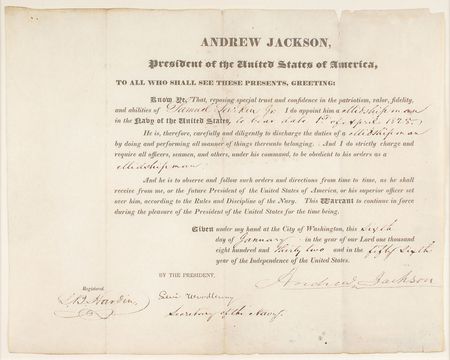 ANDREW JACKSON,
President of the United States of America,
TO ALL WHO SHALL SEE THESE PRESENTS, GREETING:
Know Ye, That, reposing special trust and confidence in the patriotism, valor, fidelity,
and abilities of Samuel Jr. I do appoint him a Midshipman
in the Navy of the United States, to bear date 1st of April 1828
He is, therefore, carefully and diligently to discharge the duties of a Midshipman
by doing and performing all manner of things thereunto belonging. And I do strictly charge and
require all officers, seamen, and others, under his command, to be obedient to his orders as a
Midshipman.
And he is to observe and follow such orders and directions from time to time, as he shall
receive from me, or the future President of the United States of America, or his superior officer set
over him, according to the Rules and Discipline of the Navy. This Warrant to continue in force
during the pleasure of the President of the United States for the time being.
Given under my hand at the City of Washington, this Sixth
day of January in the year of our Lord one thousand
eight hundred and thirty two and in the fifty Sixth
year of the Independence of the United States.
Andrew Jackson
BY THE PRESIDENT,
Registered.
Hardin
Levi Woodbury
Secretary of the Navy.